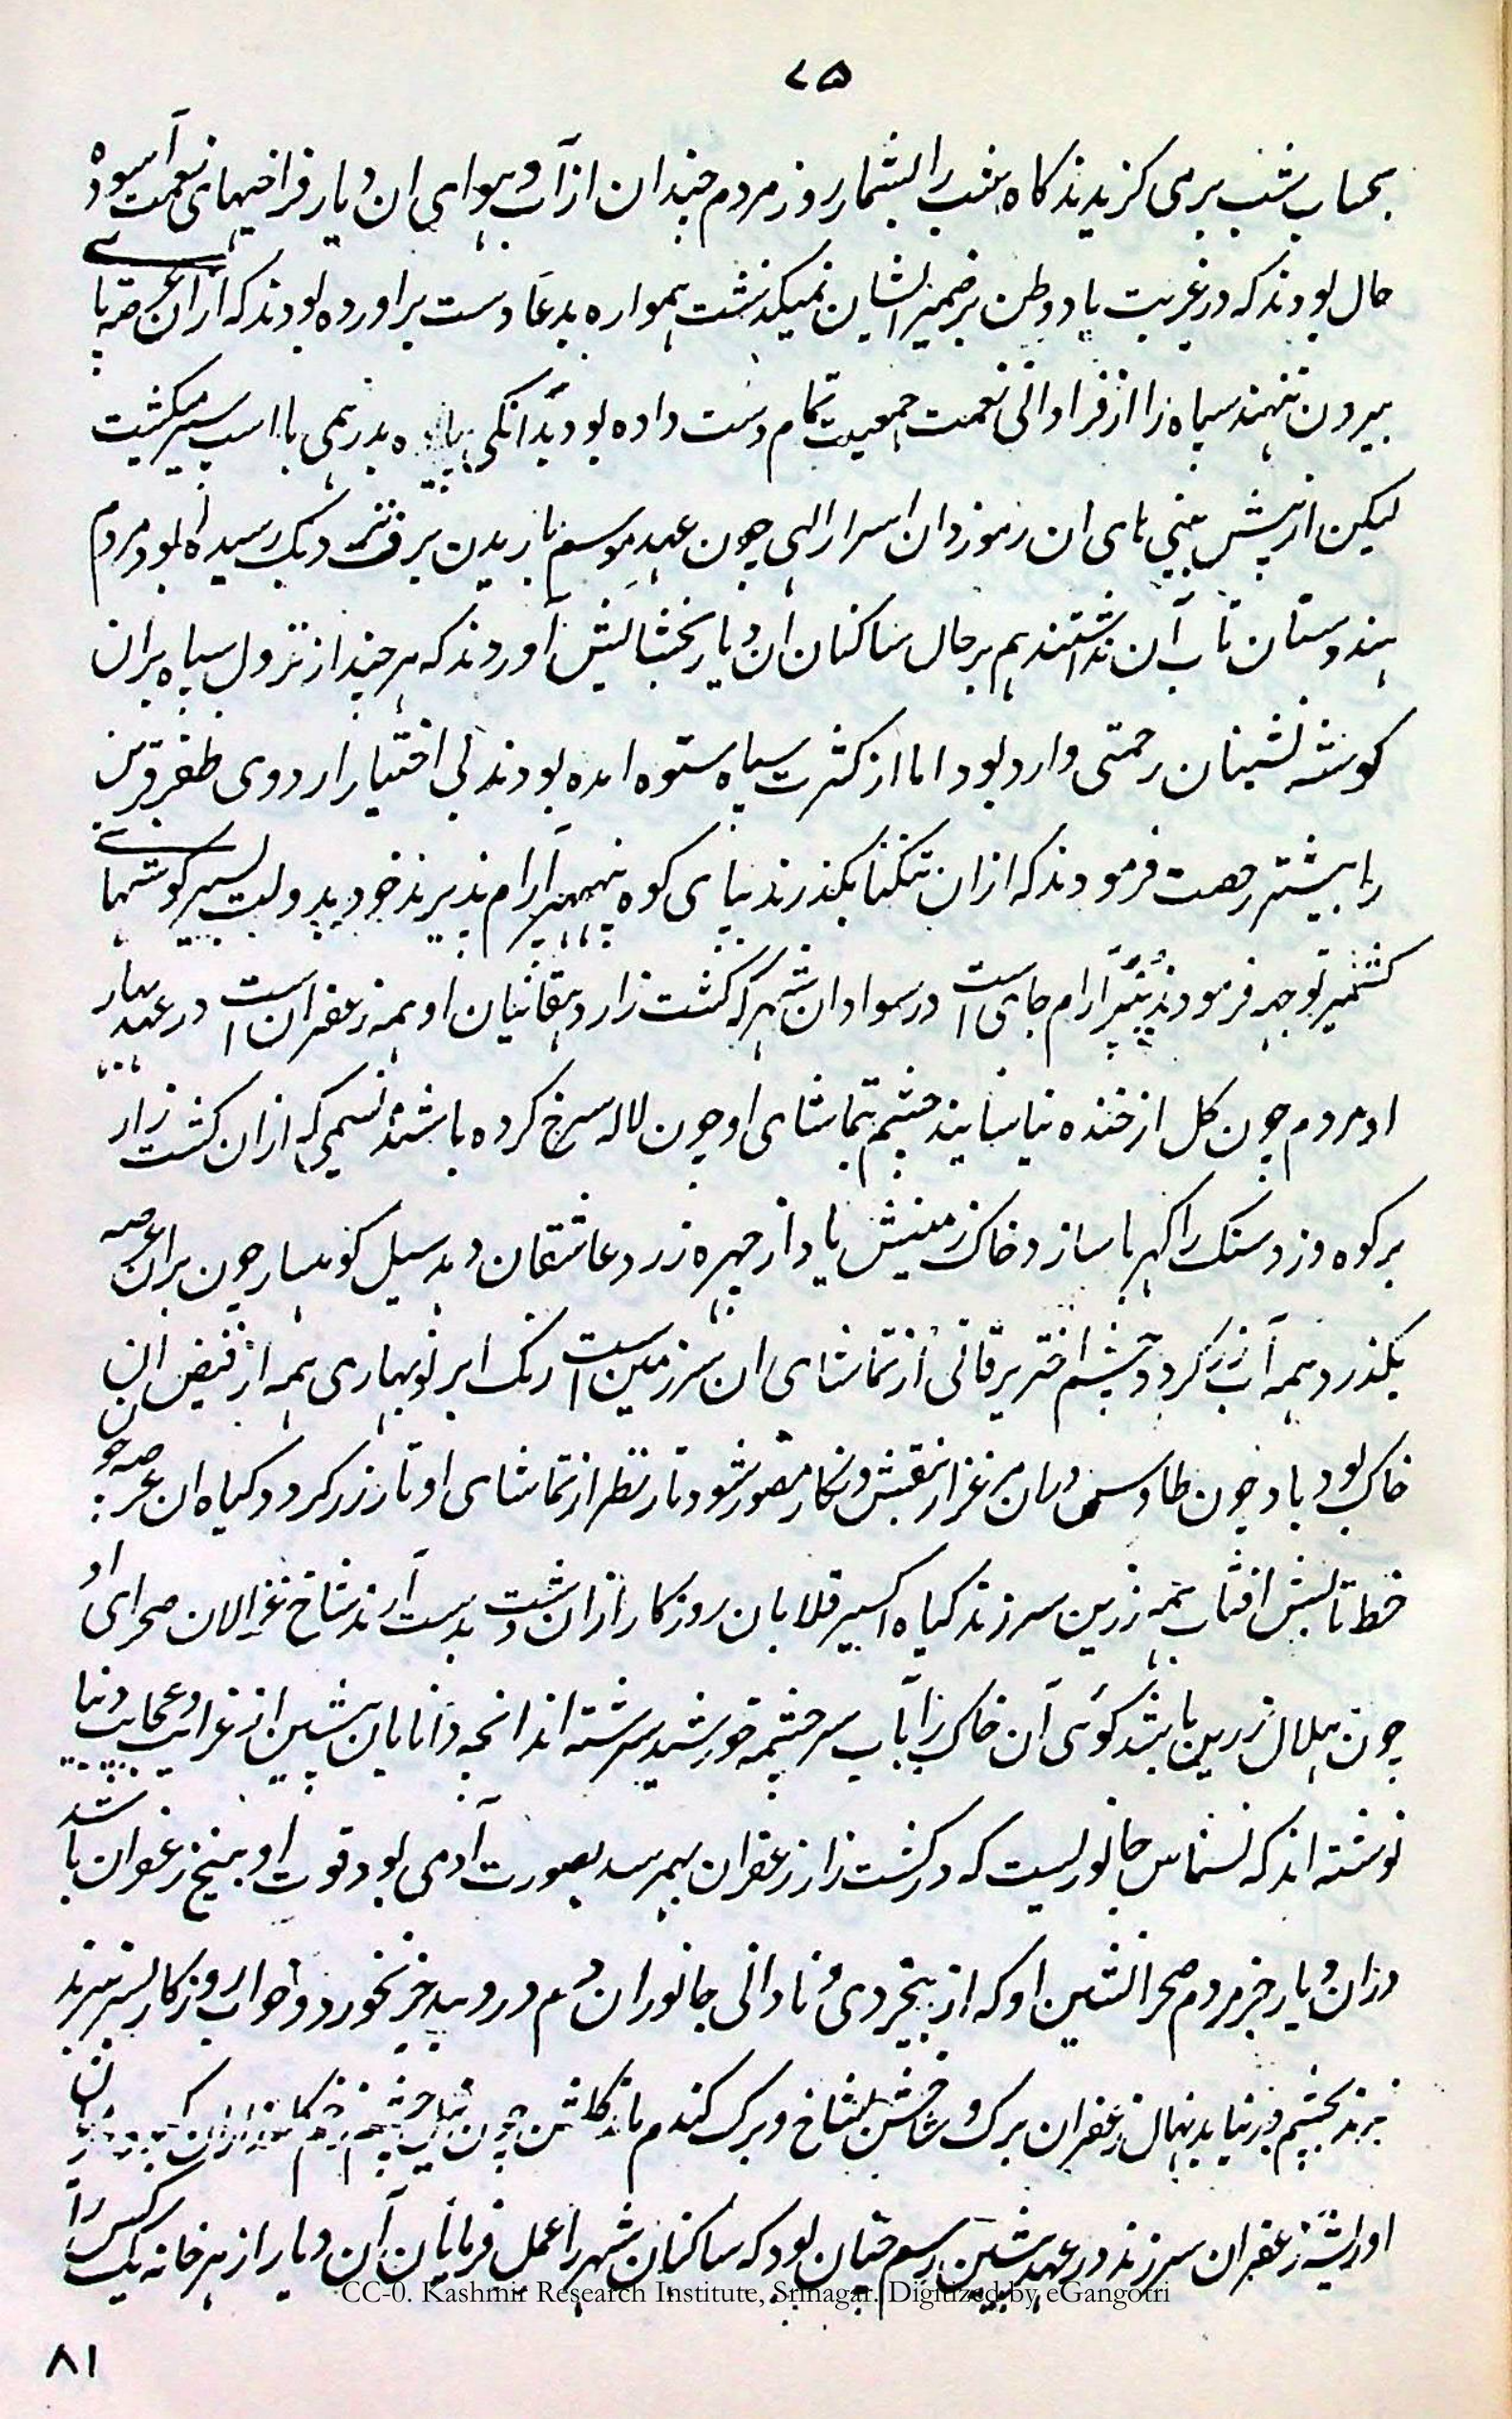 ۷۵
بحساب شب بر می کزیدند کاه شب را بشمار روز مردم چندان از آب و هوای ان دیار فراخیهای نعمت آسوده
حال بودند که در غربت یاد وطن بر ضمیر ایشان نمیکذشت همواره بدعا دست براورده بودند که ازان عرصه پا
بیرون ننهند سپاه را از فراوانی نعمت جمعیت تمام دست داده بود بدانکی بدرهمی با اسپ سیر میکشت
لیکن از پیش بینی های ان رموزدان اسرار الهی چون عهد موسم باریدن برف نزدیک رسیده بود مردم
هندوستان تاب آن نداشتند هم بر حال ساکنان ان دیار بخشایش آوردند که هر چند از نزول سپاه بران
کوشه نشینان رحمتی وارد بود اما از کثرت سپاه ستوه امده بودند بی اختیار اردوی ظفر قرین
را پیشتر رخصت فرمودند که ازان تنکنا بکذرند بپای کوه آرام پذیرند خود بدولت بسیر کوشهای
کشمیر توجه فرمودند آرام جای است در سواد ان شهر که کشت زار دهقانیان او همه زعفران است در عهد بهار
او مردم چون کل از خنده نیاسایند چشم تماشای او چون لاله سرخ کرده باشند نسیمی که ازان کشت زار
بر کوه وزد سنک را کهربا سازد خاک زمینش یاد از چهره زرد عاشقان دهد سیل کوهسار چون بران عرصه
بکذرد همه آب زر کردد چشم اختر یرقانی از تماشای ان سرزمین است رنک ابر نوبهاری همه از فیض ان
خاک بود باد چون طاوس دران مرغزار نقش و نکار مصور شود تار نظر از تماشای او تار زر کردد کیاه ان عرصه چون
خط تابش افتاب همه زرین سرزند کیاه اکسیر قلابان روزکار ازان دشت بدست آرند شاخ غزالان صحرای او
چون هلال زرین باشد کوئی آن خاک را بآب سرچشمه خورشید سرشته اند انچه دانایان پیشین از غرایب و عجایب دنیا
نوشته اند که نسناس جانوریست که در کشت زار زعفران بهمرسد بصورت آدمی بود قوت او به بیخ زعفران باشد
دران دیار جز مردم صحرا نشین او که از بیخردی و نادانی جانوران دم در و بید جز نخورد و خواب روزکار بسر برند
برند بچشم در نیاید نهال زعفران برک و شاخش بشاخ و برک کندم ماند کلشن چون
او ریشه زعفران سرزند در عهد پیشین رسم چنان بود که ساکنان شهر را عمل فرمایان آن دیار از هر خانه یک کس را
CC-0. Kashmir Research Institute, Srinagar. Digitized by eGangotri
۸۱